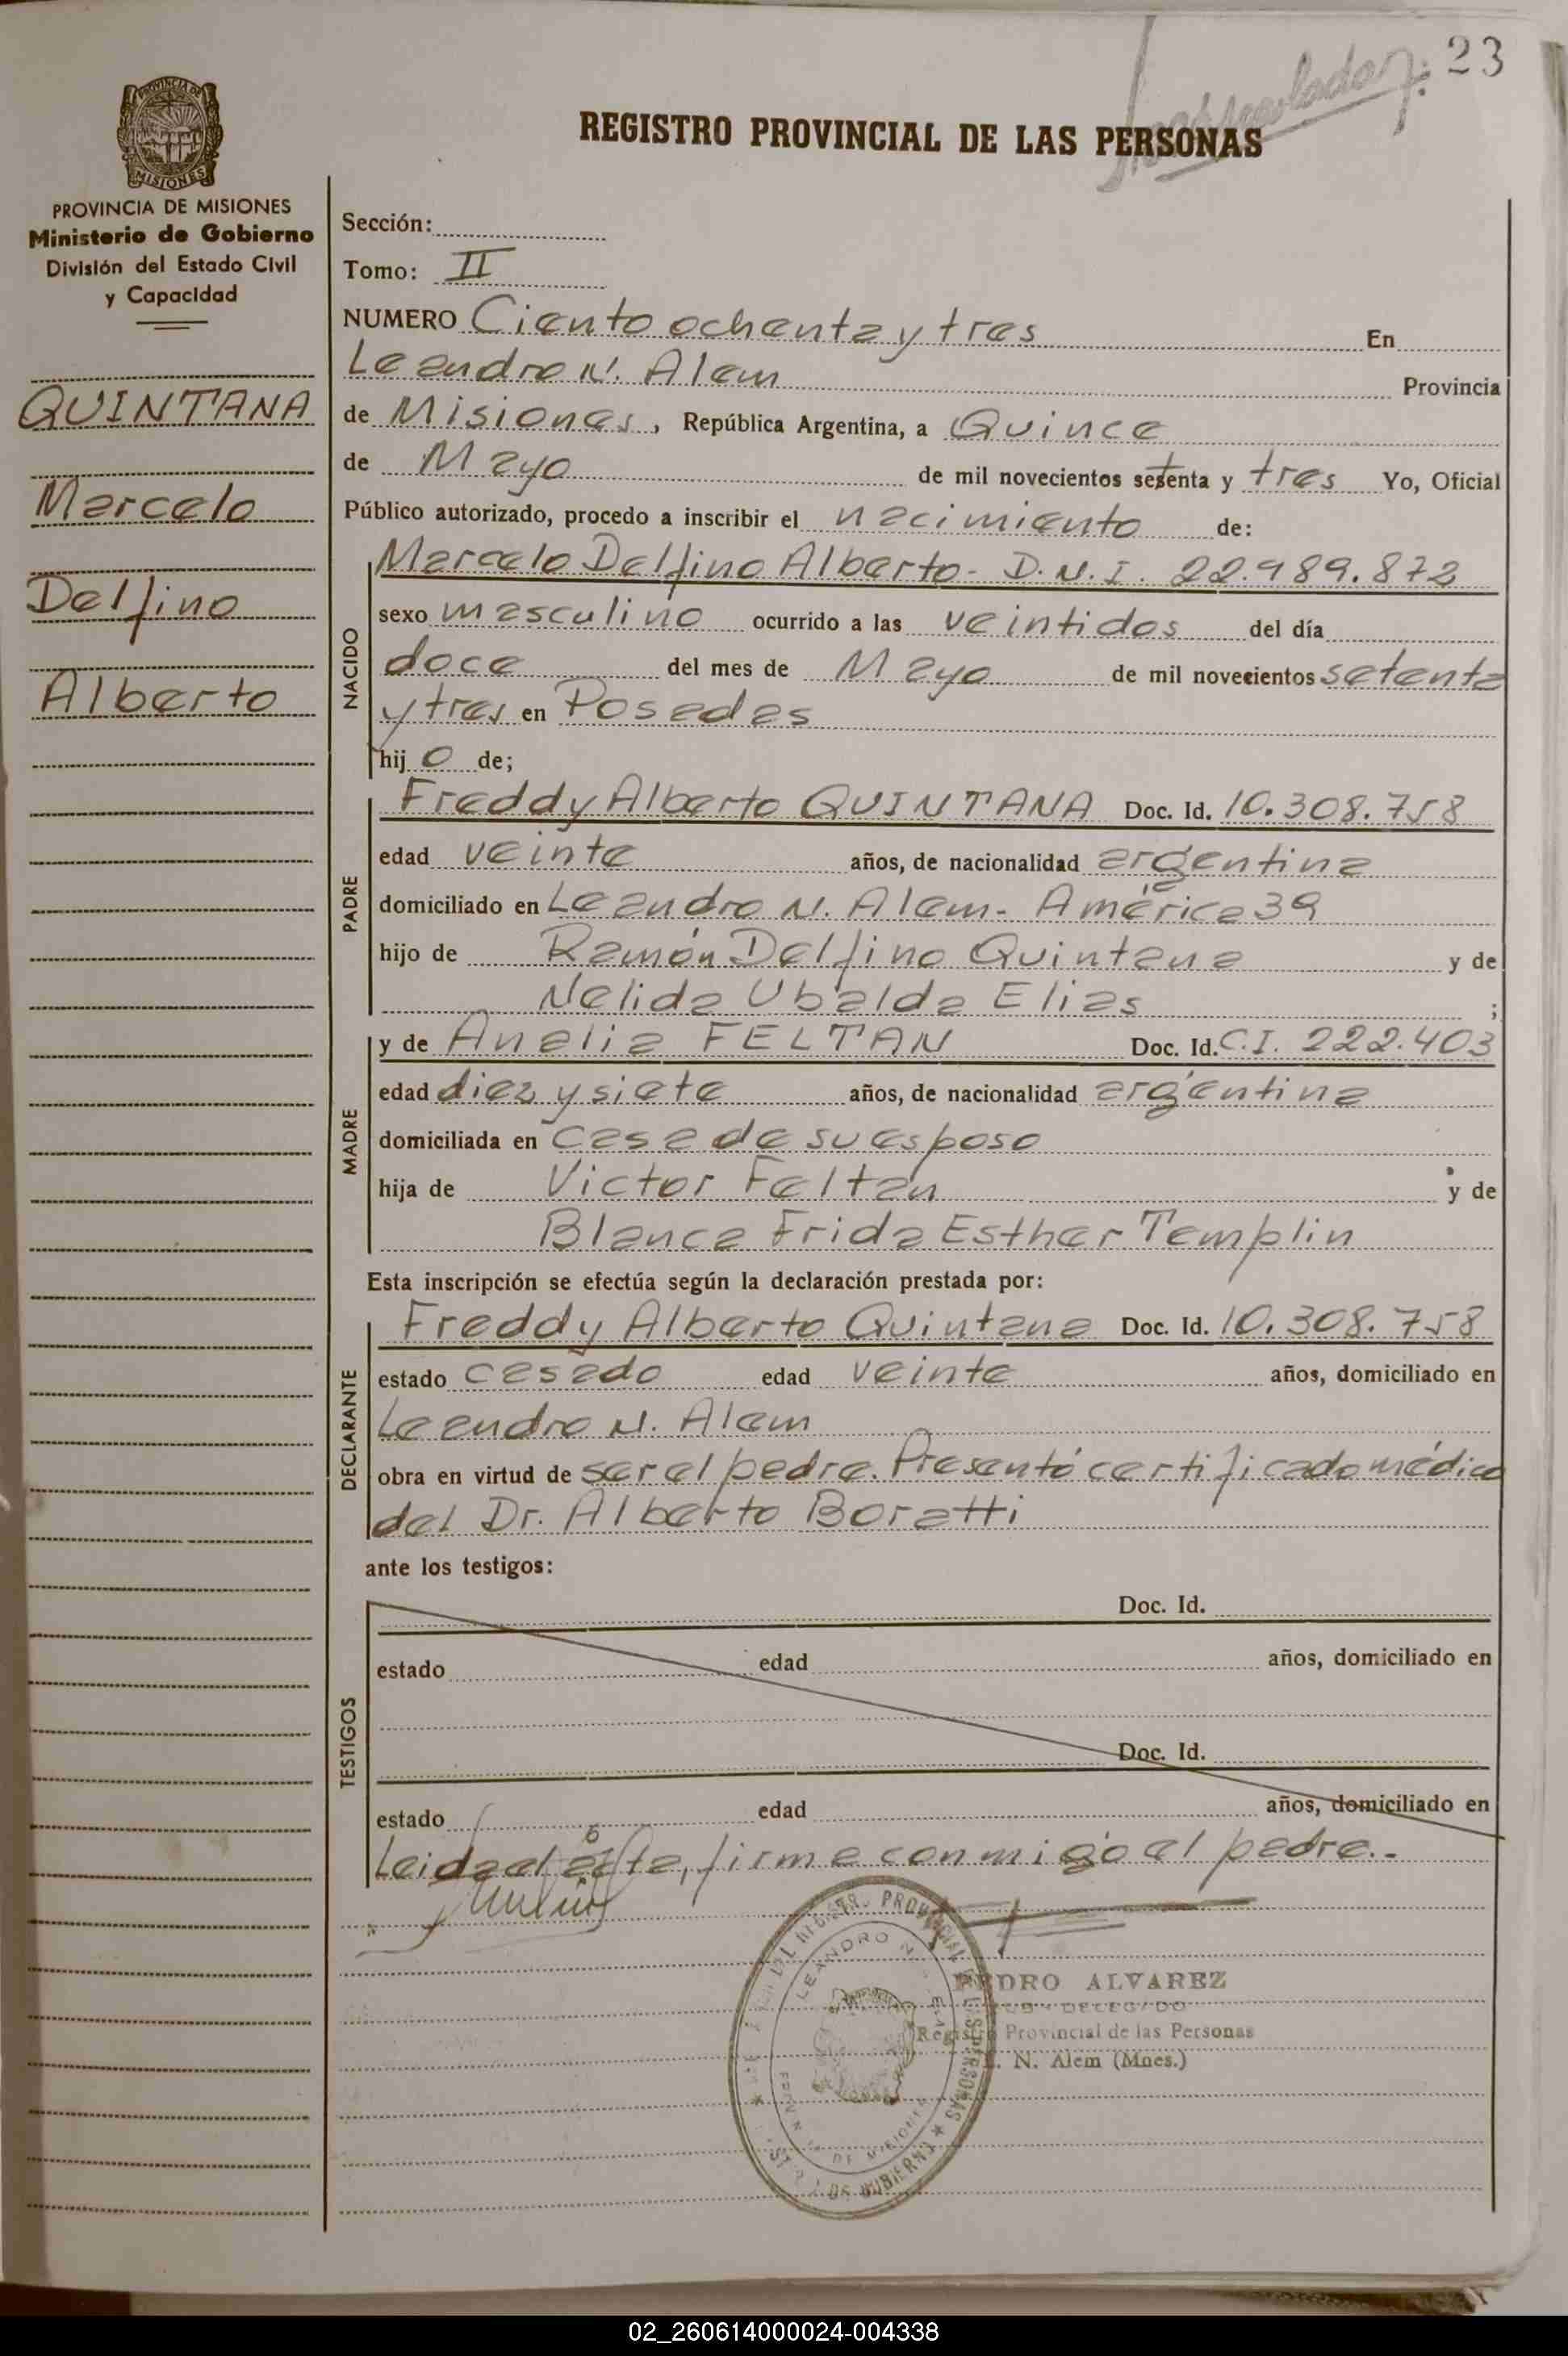 23
REGISTRO PROVINCIAL DE LAS PERSONAS
PROVINCIA DE MISIONES
Ministerio de Gobierno
División del Estado Civil
y Capacidad
QUINTANA
Marcelo
Delfino
Alberto
Sección:
Tomo: II
NUMERO Ciento ochenta y tres En
Leandro N. Alem Provincia
de Misiones, República Argentina, a Quince
de Mayo de mil novecientos setenta y tres Yo, Oficial
Público autorizado, procedo a inscribir el nacimiento de:
NACIDO
Marcelo Delfino Alberto- D.N.I. 22.989.872
sexo masculino ocurrido a las veintidos del día
doce del mes de Mayo de mil novecientos setenta
y tres en Posadas
hijo de;
PADRE
Freddy Alberto QUINTANA Doc. Id. 10.308.758
edad veinte años, de nacionalidad argentina
domiciliado en Leandro N. Alem- América 39
hijo de Ramón Delfino Quintana y de
Nelida Ubalda Elias ;
MADRE
y de Analia FELTAN Doc. Id. C.I. 222.403
edad diez y siete años, de nacionalidad argentina
domiciliada en casa de su esposo
hija de Victor Feltan y de
Blanca Frida Esther Templin
Esta inscripción se efectúa según la declaración prestada por:
DECLARANTE
Freddy Alberto Quintana Doc. Id. 10.308.758
estado casado edad veinte años, domiciliado en
Leandro N. Alem
obra en virtud de ser el padre. Presentó certificado médico
del Dr. Alberto Boratti
ante los testigos:
TESTIGOS
Doc. Id.
estado edad años, domiciliado en
Doc. Id.
estado edad años, domiciliado en
Leida el acta, firma conmigo el padre.-
PEDRO ALVAREZ
SUB-DELEGADO
Registro Provincial de las Personas
L. N. Alem (Mnes.)
02_260614000024-004338